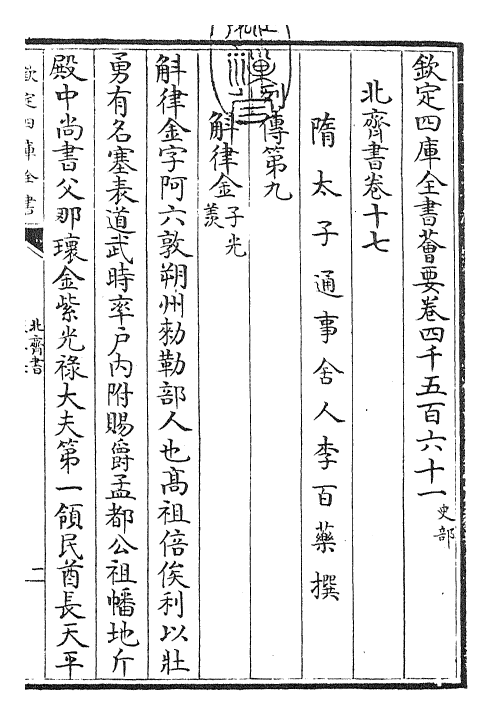 欽定四庫全書薈要卷四千五百六十一史部
北齊書卷十七
隋太子通事舍人李百藥撰
列傳第九
斛律金子光羨
斛律金字阿六敦朔州勑勒部人也髙祖倍俟利以壯
勇有名塞表道武時率户内附賜爵孟都公祖幡地斤
殿中尚書父那瓌金紫光祿大夫第一領民酋長天平
欽定四庫全書
北齊書